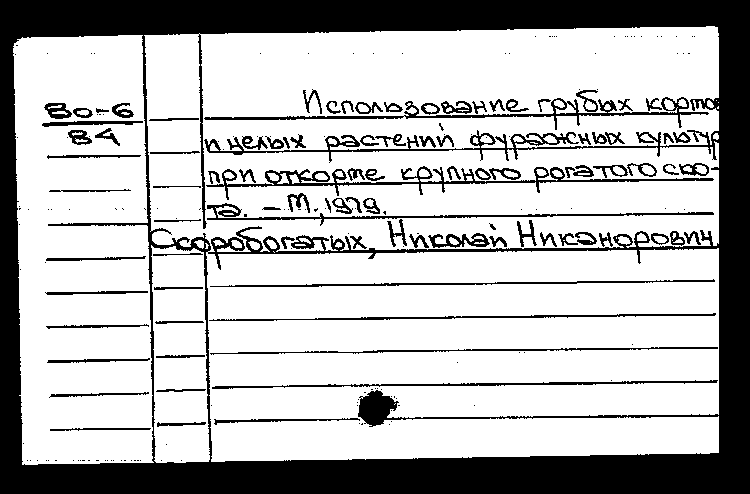 Во-6
В4
Использование грубых кормов
и целых растений фуражных культур
при откорме крупного рогатого ско-
та. – М., 1979.
Скоробогатых, Николай Никанорович